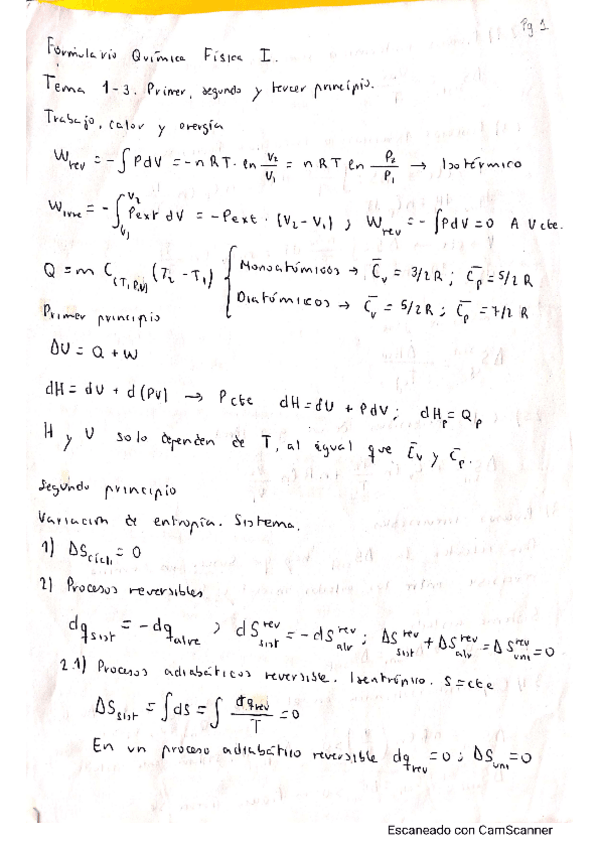 Pg 1
Formulario Química Física I.
Tema 1-3. Primer, segundo y tercer principio.
Trabajo, calor y energía
W_rev = -∫PdV = -nRT·ln V₂/V₁ = nRT ln P₂/P₁ → Isotérmico
W_irre = -∫_V₁^V₂ Pext dV = -Pext·(V₂-V₁) ; W_rev = -∫PdV = 0 A V cte.
Q = m C_(T,P,V) (T₂-T₁) { Monoatómicos → C̄v = 3/2 R ; C̄p = 5/2 R
Diatómicos → C̄v = 5/2 R ; C̄p = 7/2 R
Primer principio
ΔU = Q + W
dH = dU + d(PV) → P cte dH = dU + PdV ; dH_p = Q_p
H y U solo dependen de T, al igual que C̄v y C̄p.
Segundo principio
Variación de entropía. Sistema.
1) ΔS_cícli = 0
2) Procesos reversibles
dq_sist = -dq_alre ; dS_sist^rev = -dS_alr^rev ; ΔS_sist^rev + ΔS_alr^rev = ΔS_uni^rev = 0
2.1) Procesos adiabáticos reversible. Isentrópico. S = cte
ΔS_sist = ∫dS = ∫ dq_rev/T = 0
En un proceso adiabático reversible dq_rev = 0 ; ΔS_uni = 0
Escaneado con CamScanner